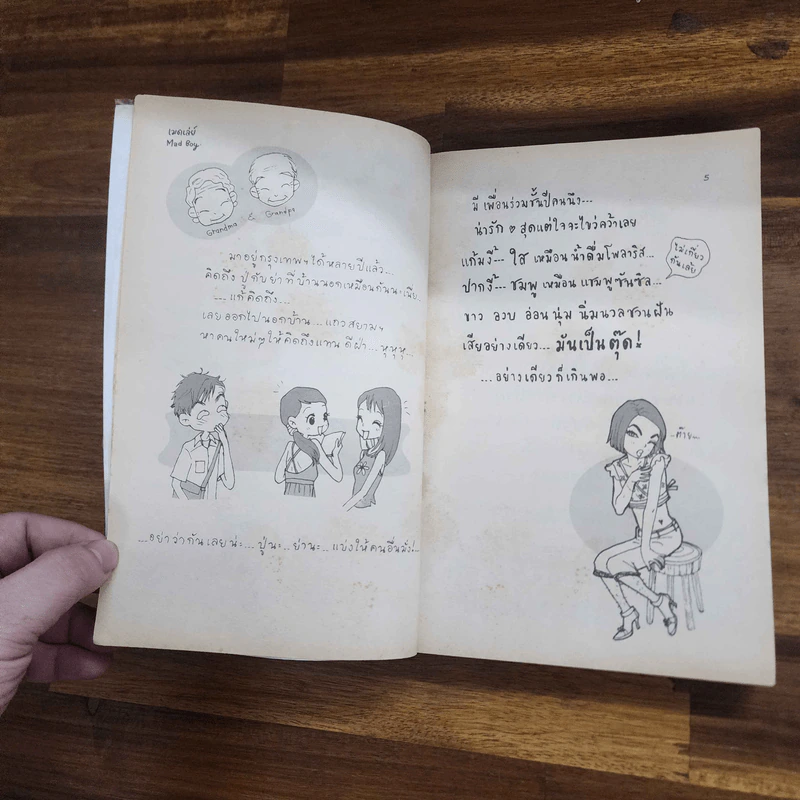 เมดเล่ย์
Mad Boy.
Grandma & Grandpa
มาอยู่กรุงเทพฯได้หลายปีแล้ว...
คิดถึง ปู่กับย่าที่บ้านนอกเหมือนกันนะเนี่ย
....แก้คิดถึง...
เลยออกไปนอกบ้าน...แถวสยามฯ
หาคนใหม่ๆให้คิดถึงแทน ดีฝ่า...หุหุหุ...
...อย่าว่ากันเลยน่ะ...ปู่นะ..ย่านะ..แบ่งให้คนอื่นมั่ง!..
5
มี เพื่อนร่วมชั้นปีคนนึง...
น่ารัก ๆ สุดแต่ใจจะไขว่คว้าเลย
แก้มงี้~ ใส เหมือน น้ำดื่มโพลาริส...
ปากงี้~ ชมพู เหมือน แชมพูซันซิล...
ไม่เกี่ยว
กันเลย
ขาว อวบ อ่อน นุ่ม นิ่มนวลชวนฝัน
เสียอย่างเดียว... มันเป็นตุ๊ด!
...อย่างเดียว ก็เกินพอ...